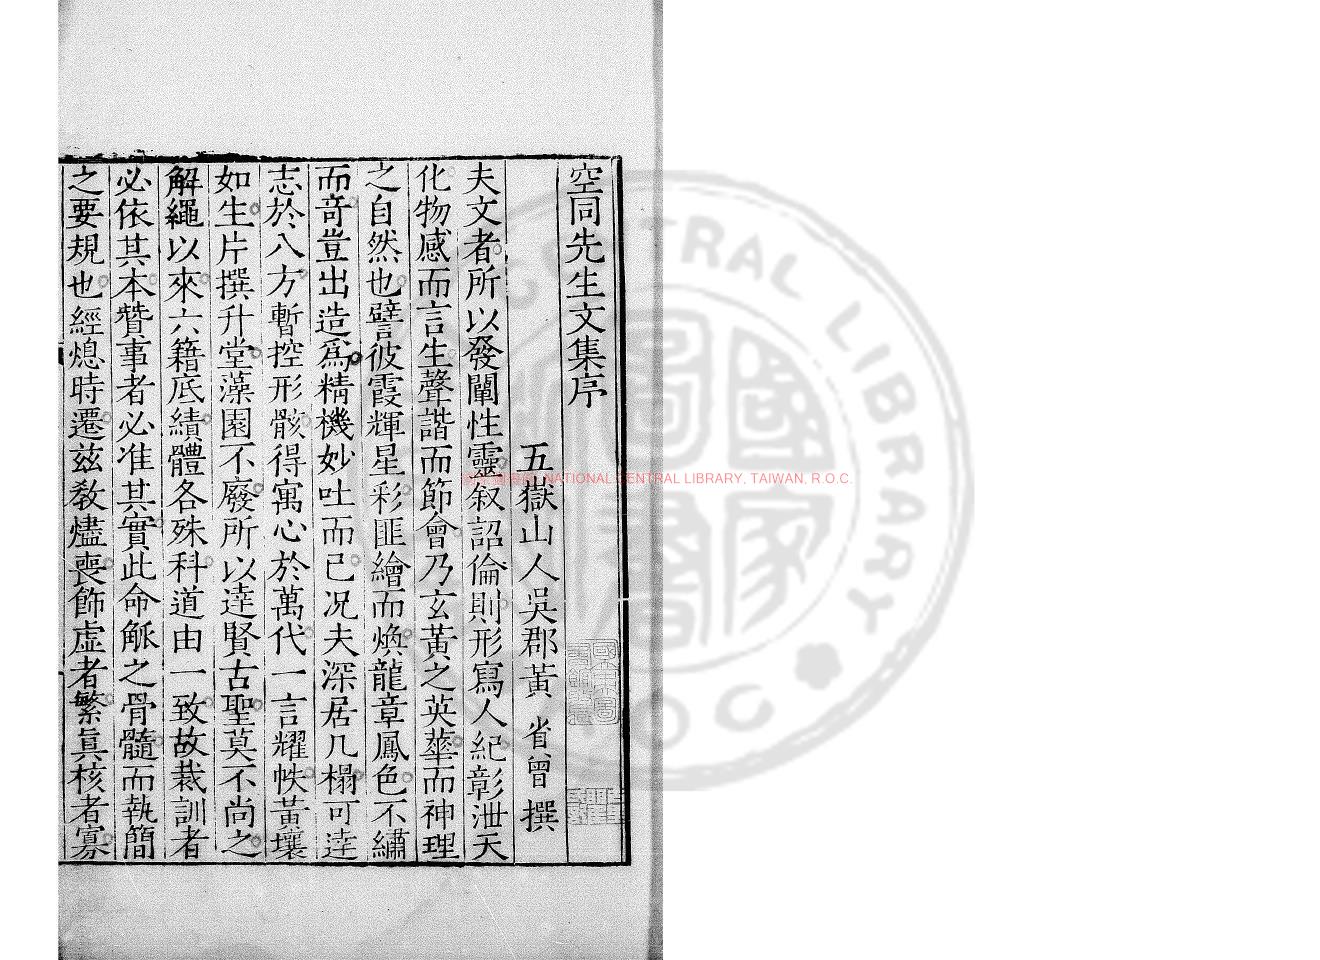 空同先生文集序
五嶽山人吳郡黃省曾撰
夫文者所以發闡性靈叙詔倫則形寫人紀彰泄天
化物感而言生聲諧而節會乃玄黃之英華而神理
之自然也譬彼霞輝星彩匪繪而煥龍章鳳色不繡
而奇豈出造爲精機妙吐而已况夫深居几榻可逹
志於八方暫控形骸得寓心於萬代一言耀帙黃壤
如生片撰升堂藻園不廢所以逹賢古聖莫不尚之
解繩以來六籍底績體各殊科道由一致故裁訓者
必依其本贊事者必准其實此命觚之骨髓而執簡
之要規也經熄時遷兹教燼喪飾虛者繁眞核者寡
國家圖書館 NATIONAL CENTRAL LIBRARY, TAIWAN, R.O.C.
CENTRAL LIBRARY
ROC